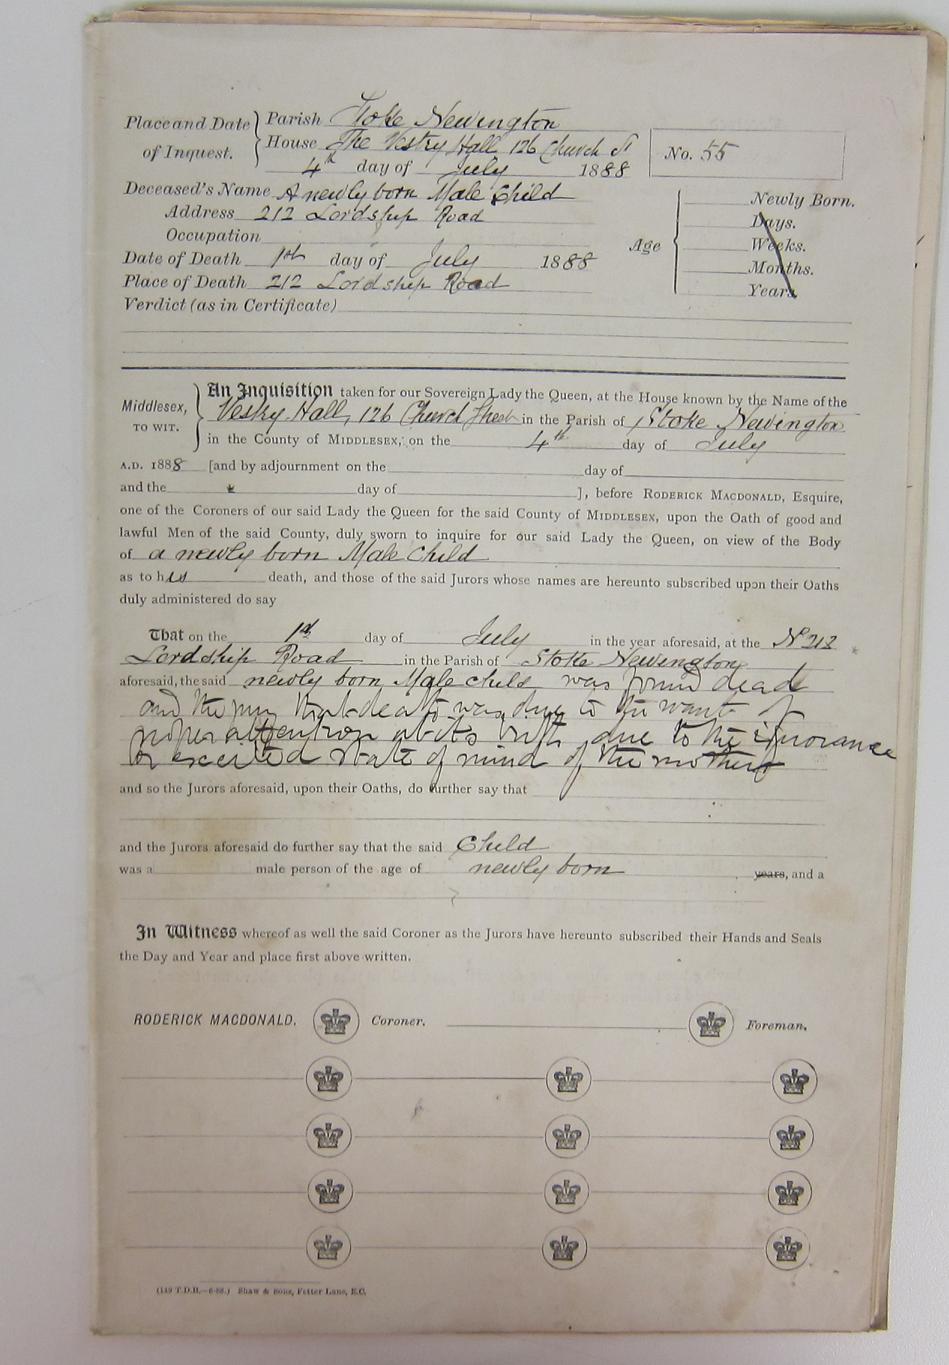 Place and Date of Inquest.
Parish Stoke Newington
House The Vestry Hall, 126 Church St
4th day of July 1888
No. 55
Deceased's Name A newly born Male Child
Address 212 Lordship Road
Occupation
Date of Death 1st day of July 1888
Place of Death 212 Lordship Road
Verdict (as in Certificate)
Age
Newly Born.
Days.
Weeks.
Months.
Years.
Middlesex, TO WIT.
An Inquisition taken for our Sovereign Lady the Queen, at the House known by the Name of the
Vestry Hall, 126 Church Street in the Parish of Stoke Newington
in the County of MIDDLESEX, on the 4th day of July
A.D. 1888 [and by adjournment on the day of
and the day of ], before RODERICK MACDONALD, Esquire,
one of the Coroners of our said Lady the Queen for the said County of MIDDLESEX, upon the Oath of good and
lawful Men of the said County, duly sworn to inquire for our said Lady the Queen, on view of the Body
of a newly born Male Child
as to his death, and those of the said Jurors whose names are hereunto subscribed upon their Oaths
duly administered do say
That on the 1st day of July in the year aforesaid, at the No 212
Lordship Road in the Parish of Stoke Newington
aforesaid, the said newly born Male child was found dead
and the jury that death was due to the want of
proper attention at its birth due to the ignorance
or excited state of mind of the mother
and so the Jurors aforesaid, upon their Oaths, do further say that
and the Jurors aforesaid do further say that the said Child
was a male person of the age of newly born years, and a
In Witness whereof as well the said Coroner as the Jurors have hereunto subscribed their Hands and Seals
the Day and Year and place first above written.
RODERICK MACDONALD. Coroner. Foreman.
(149 T.D.B.—6-88.) Shaw & Sons, Fetter Lane, E.C.